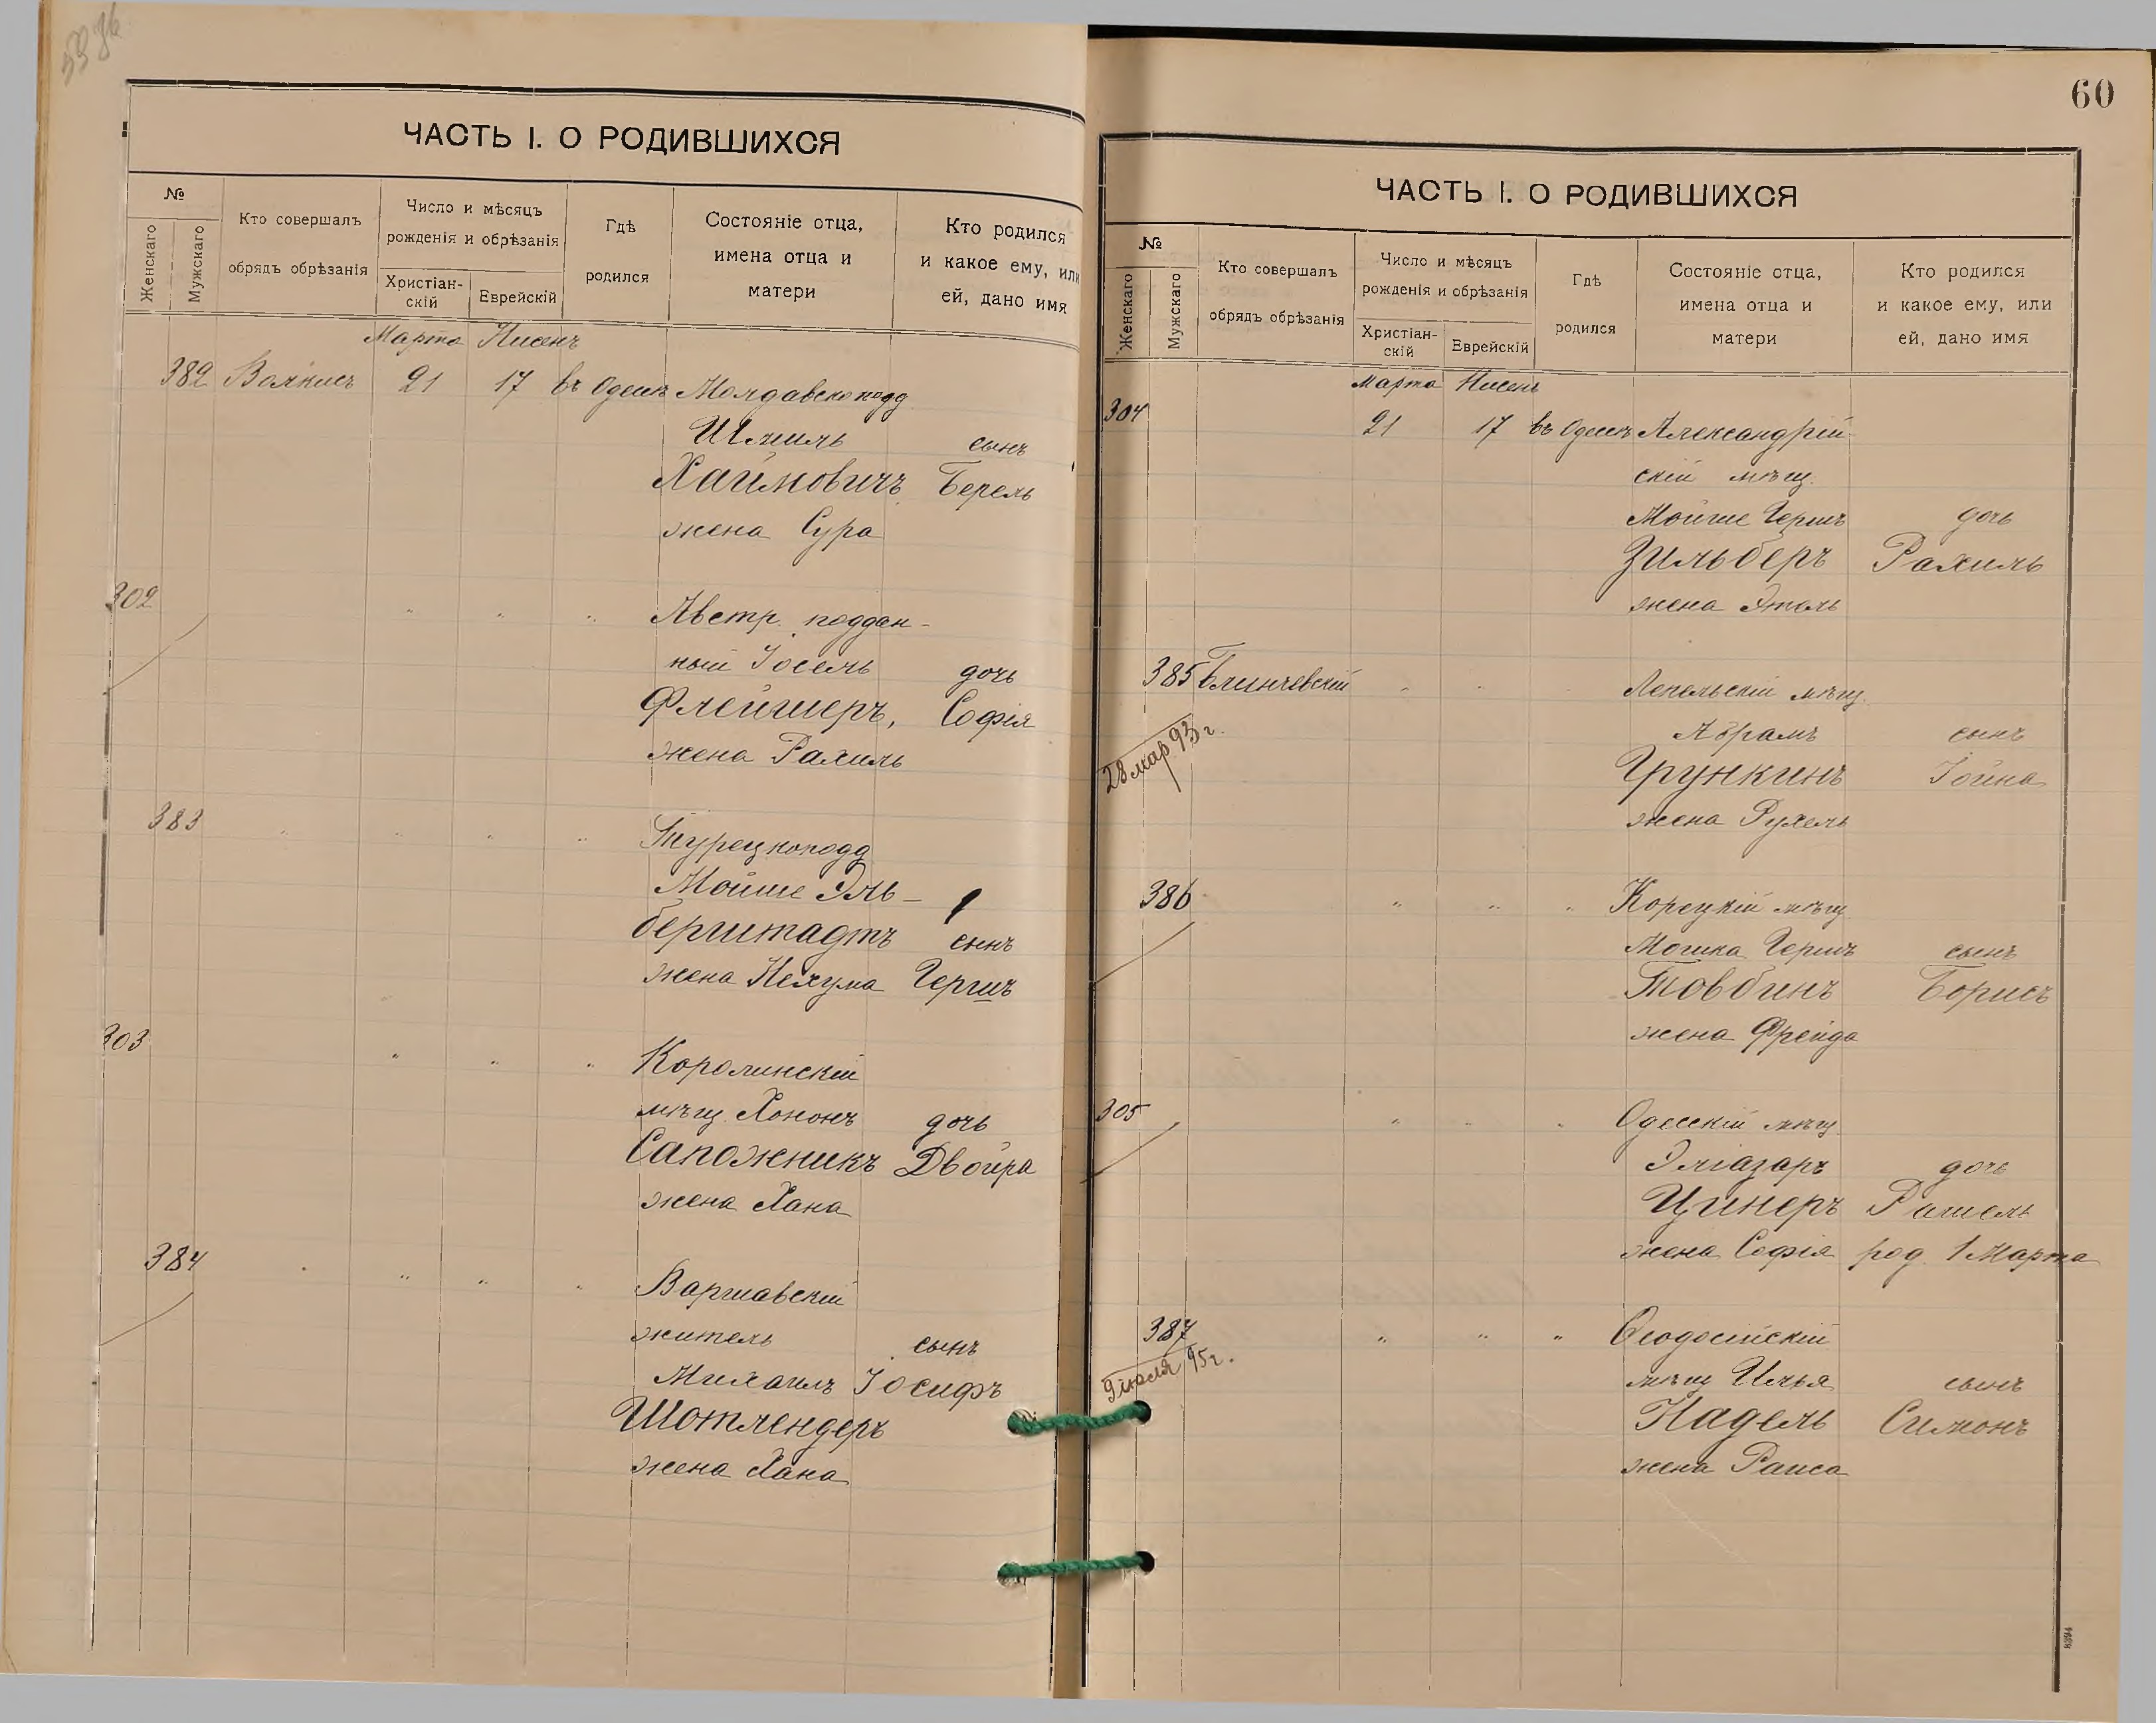 ЧАСТЬ I. О РОДИВШИХСЯ
№
Женскаго
Мужскаго
Кто совершалъ
обрядъ обрѣзанія
Число и мѣсяцъ
рожденія и обрѣзанія
Христіан-
скій
Еврейскій
Гдѣ
родился
Состояніе отца,
имена отца и
матери
Кто родился
и какое ему, или
ей, дано имя
Марта Нисенъ
382 21 17 въ Одессѣ Молдавскоподд
Шмиль сынъ
Хаймовичъ Берель
жена Сура
302 Австр. поддан-
ный Іосель дочь
Флейшеръ, Софія
жена Рахиль
383 Турецкоподд
Мойше Эль-
берштадтъ сынъ
жена Нехума Гершъ
303 Каролинскій
мѣщ Хононъ дочь
Сапожникъ Двойра
жена Хана
384 Варшавскій
житель сынъ
Михаилъ Іосифъ
Шотлендеръ
жена Хана
60
ЧАСТЬ I. О РОДИВШИХСЯ
№
Женскаго
Мужскаго
Кто совершалъ
обрядъ обрѣзанія
Число и мѣсяцъ
рожденія и обрѣзанія
Христіан-
скій
Еврейскій
Гдѣ
родился
Состояніе отца,
имена отца и
матери
Кто родился
и какое ему, или
ей, дано имя
Марта Нисенъ
304 21 17 въ Одессѣ Александрій-
скій мѣщ.
Мойше Гершъ дочь
Зильберъ Рахиль
жена Этель
385 Блинчевскій Лепельскій мѣщ.
28 мар 93 г.
Абрамъ сынъ
Грункинъ Іойна
жена Рухель
386 Корецкій мѣщ
Мошка Гершъ сынъ
Товбинъ Борисъ
жена Фрейда
305 Одесскій мѣщ.
Эліазаръ дочь
Цинеръ Рашель
жена Софія род. 1 Марта
387 Ѳеодосійскій
9 іюля 95 г.
мѣщ Илья сынъ
Надель Симонъ
жена Раиса
8394